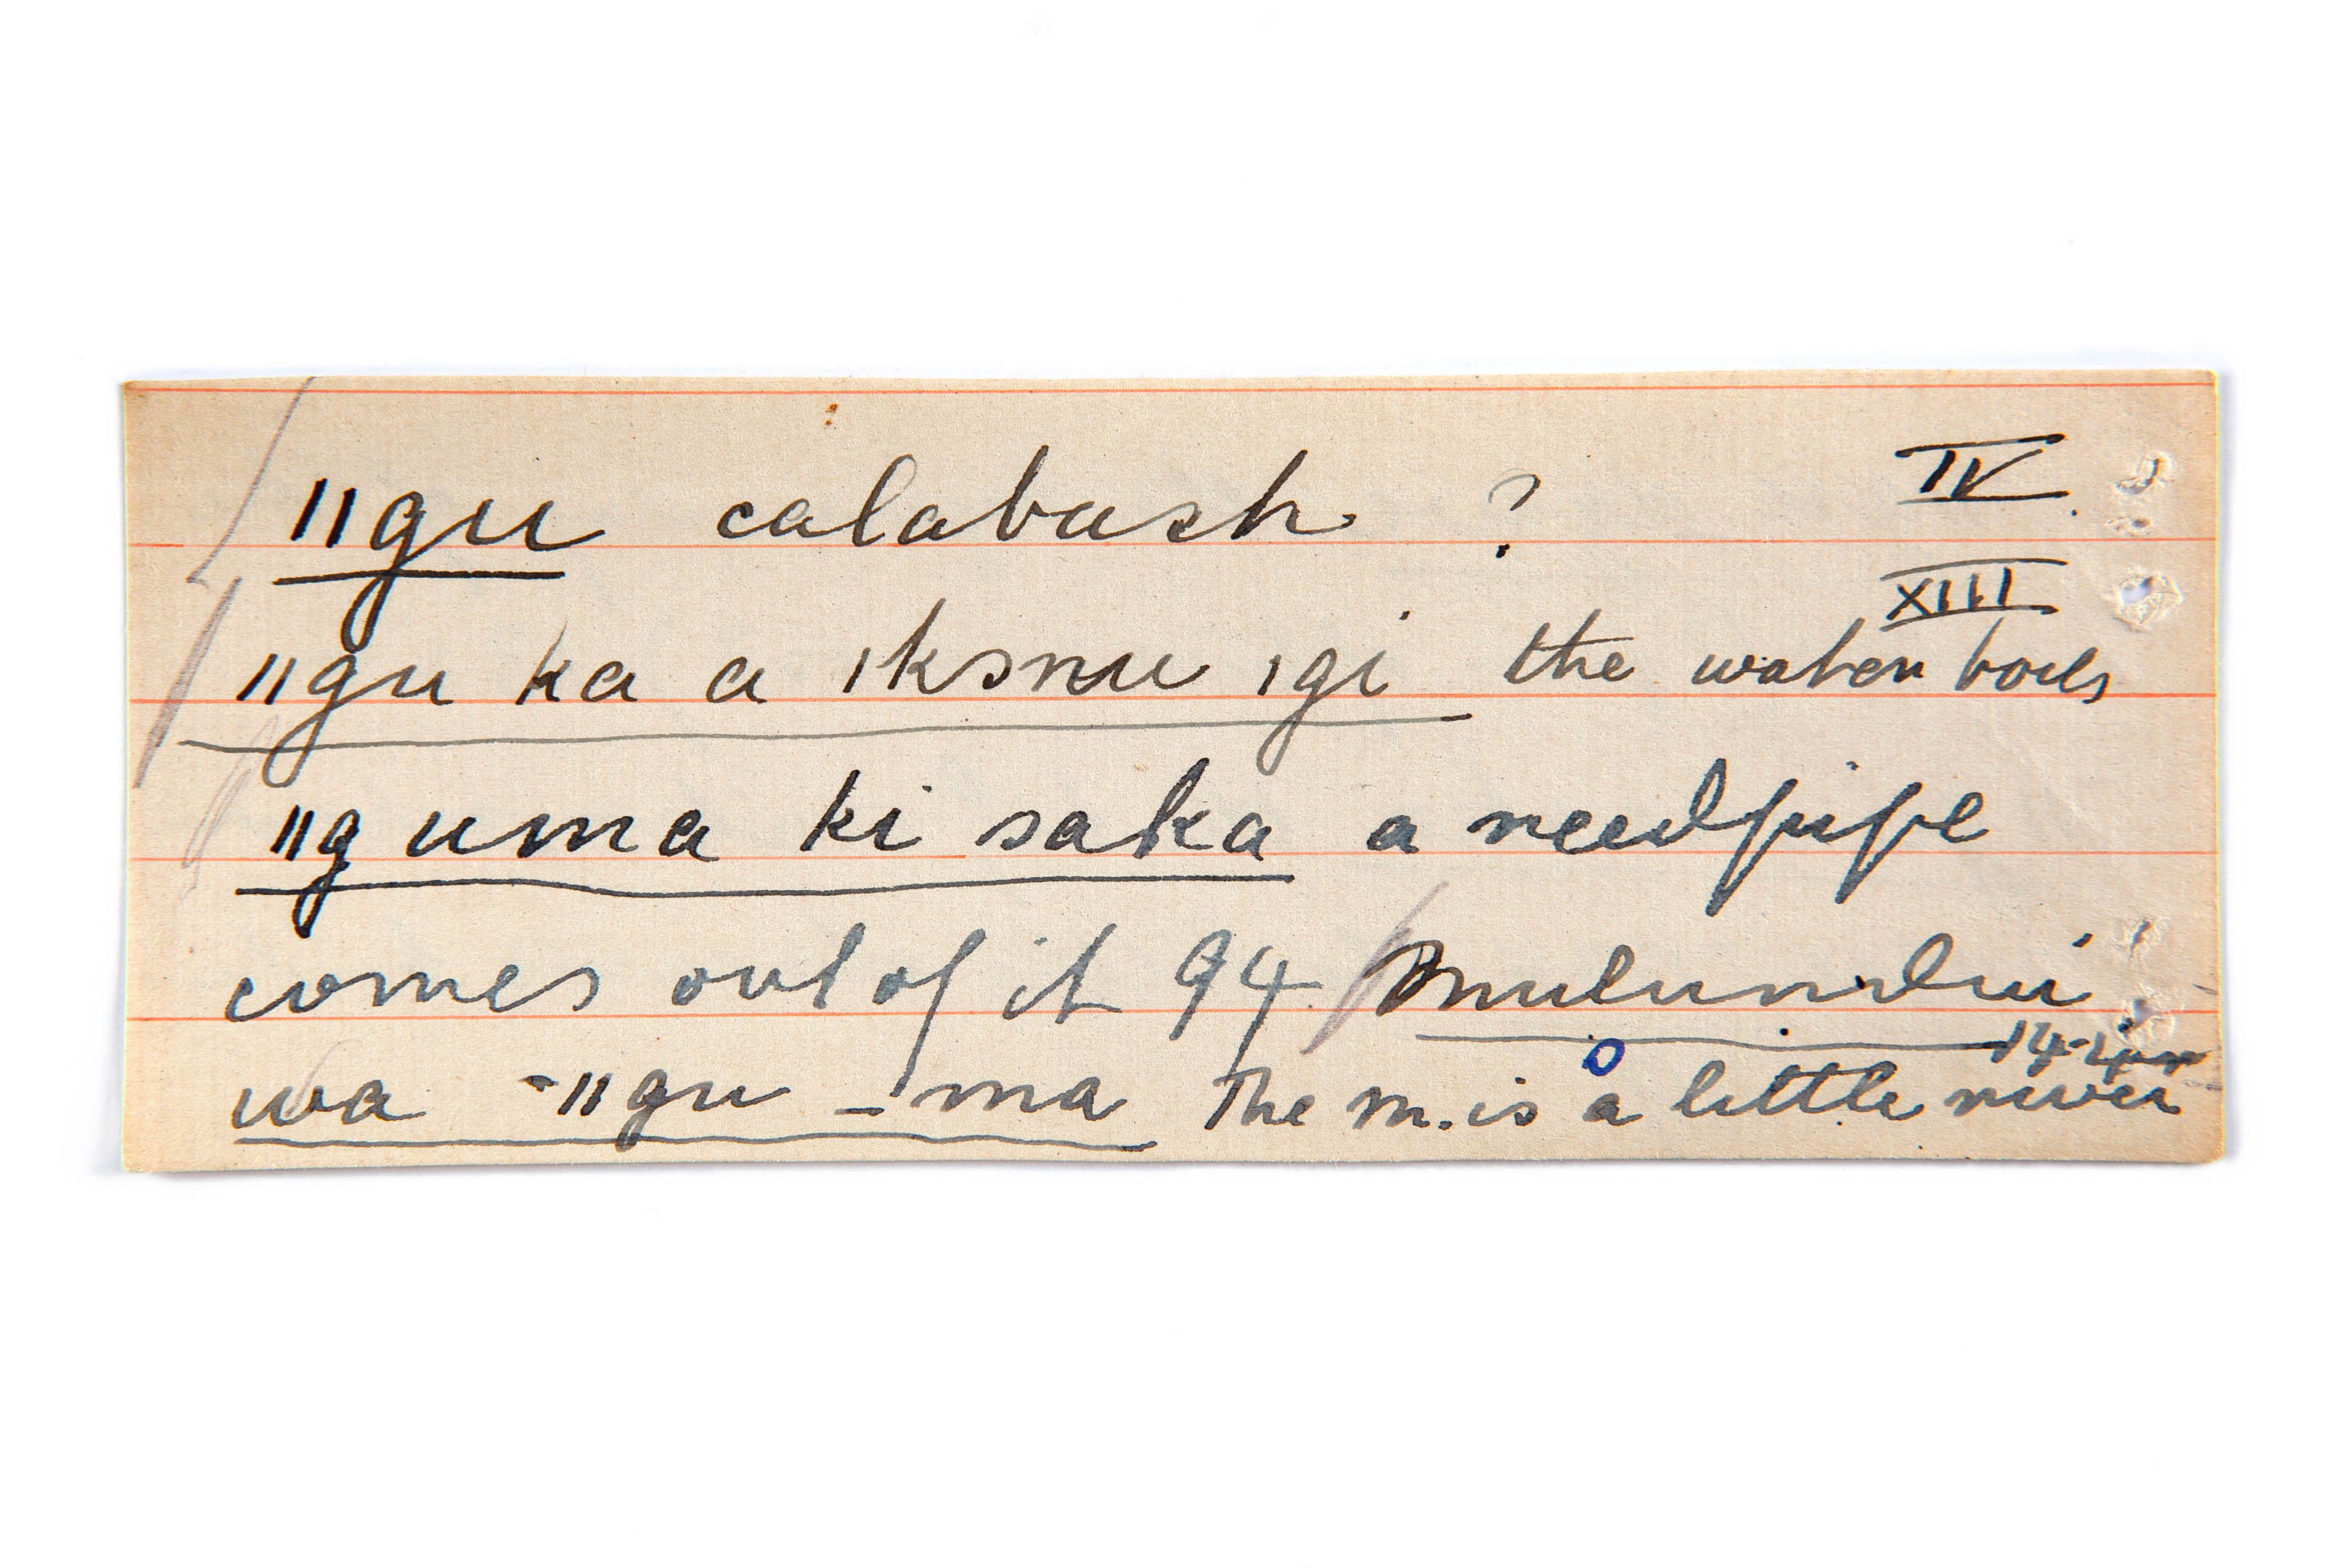 ǁgu calabash ? IV
XIII
ǁgu ka a ǀksnu ǀgi the water boils
ǁguma ki saka a reedpipe
comes out of it 94 mulundui
wa -ǁgu-ma The m. is a little river